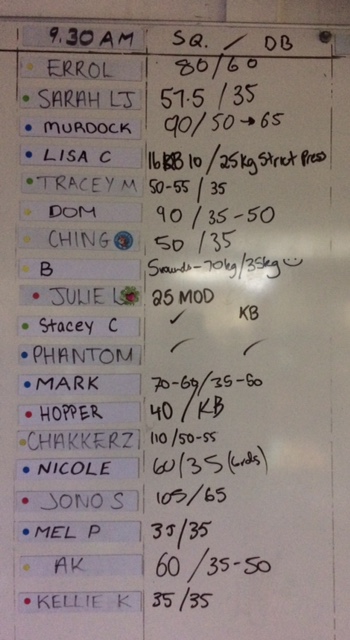 9.30 AM SQ. / DB
ERROL 80/60
SARAH LJ 57.5 / 35
MURDOCK 90/50→65
LISA C 16KB 10 / 25kg Strict Press
TRACEY M 50-55 / 35
DOM 90 / 35-50
CHING 50 / 35
B 5rounds-70kg/35kg
JULIE L 25 MOD
Stacey C ✓ KB
PHANTOM ✓ ✓
MARK 70-60/35-50
HOPPER 40 / KB
CHAKKERZ 110/50-55
NICOLE 60/35 (6rds)
JONO S 105/65
MEL P 35/35
AK 60 /35-50
KELLIE K 35/35